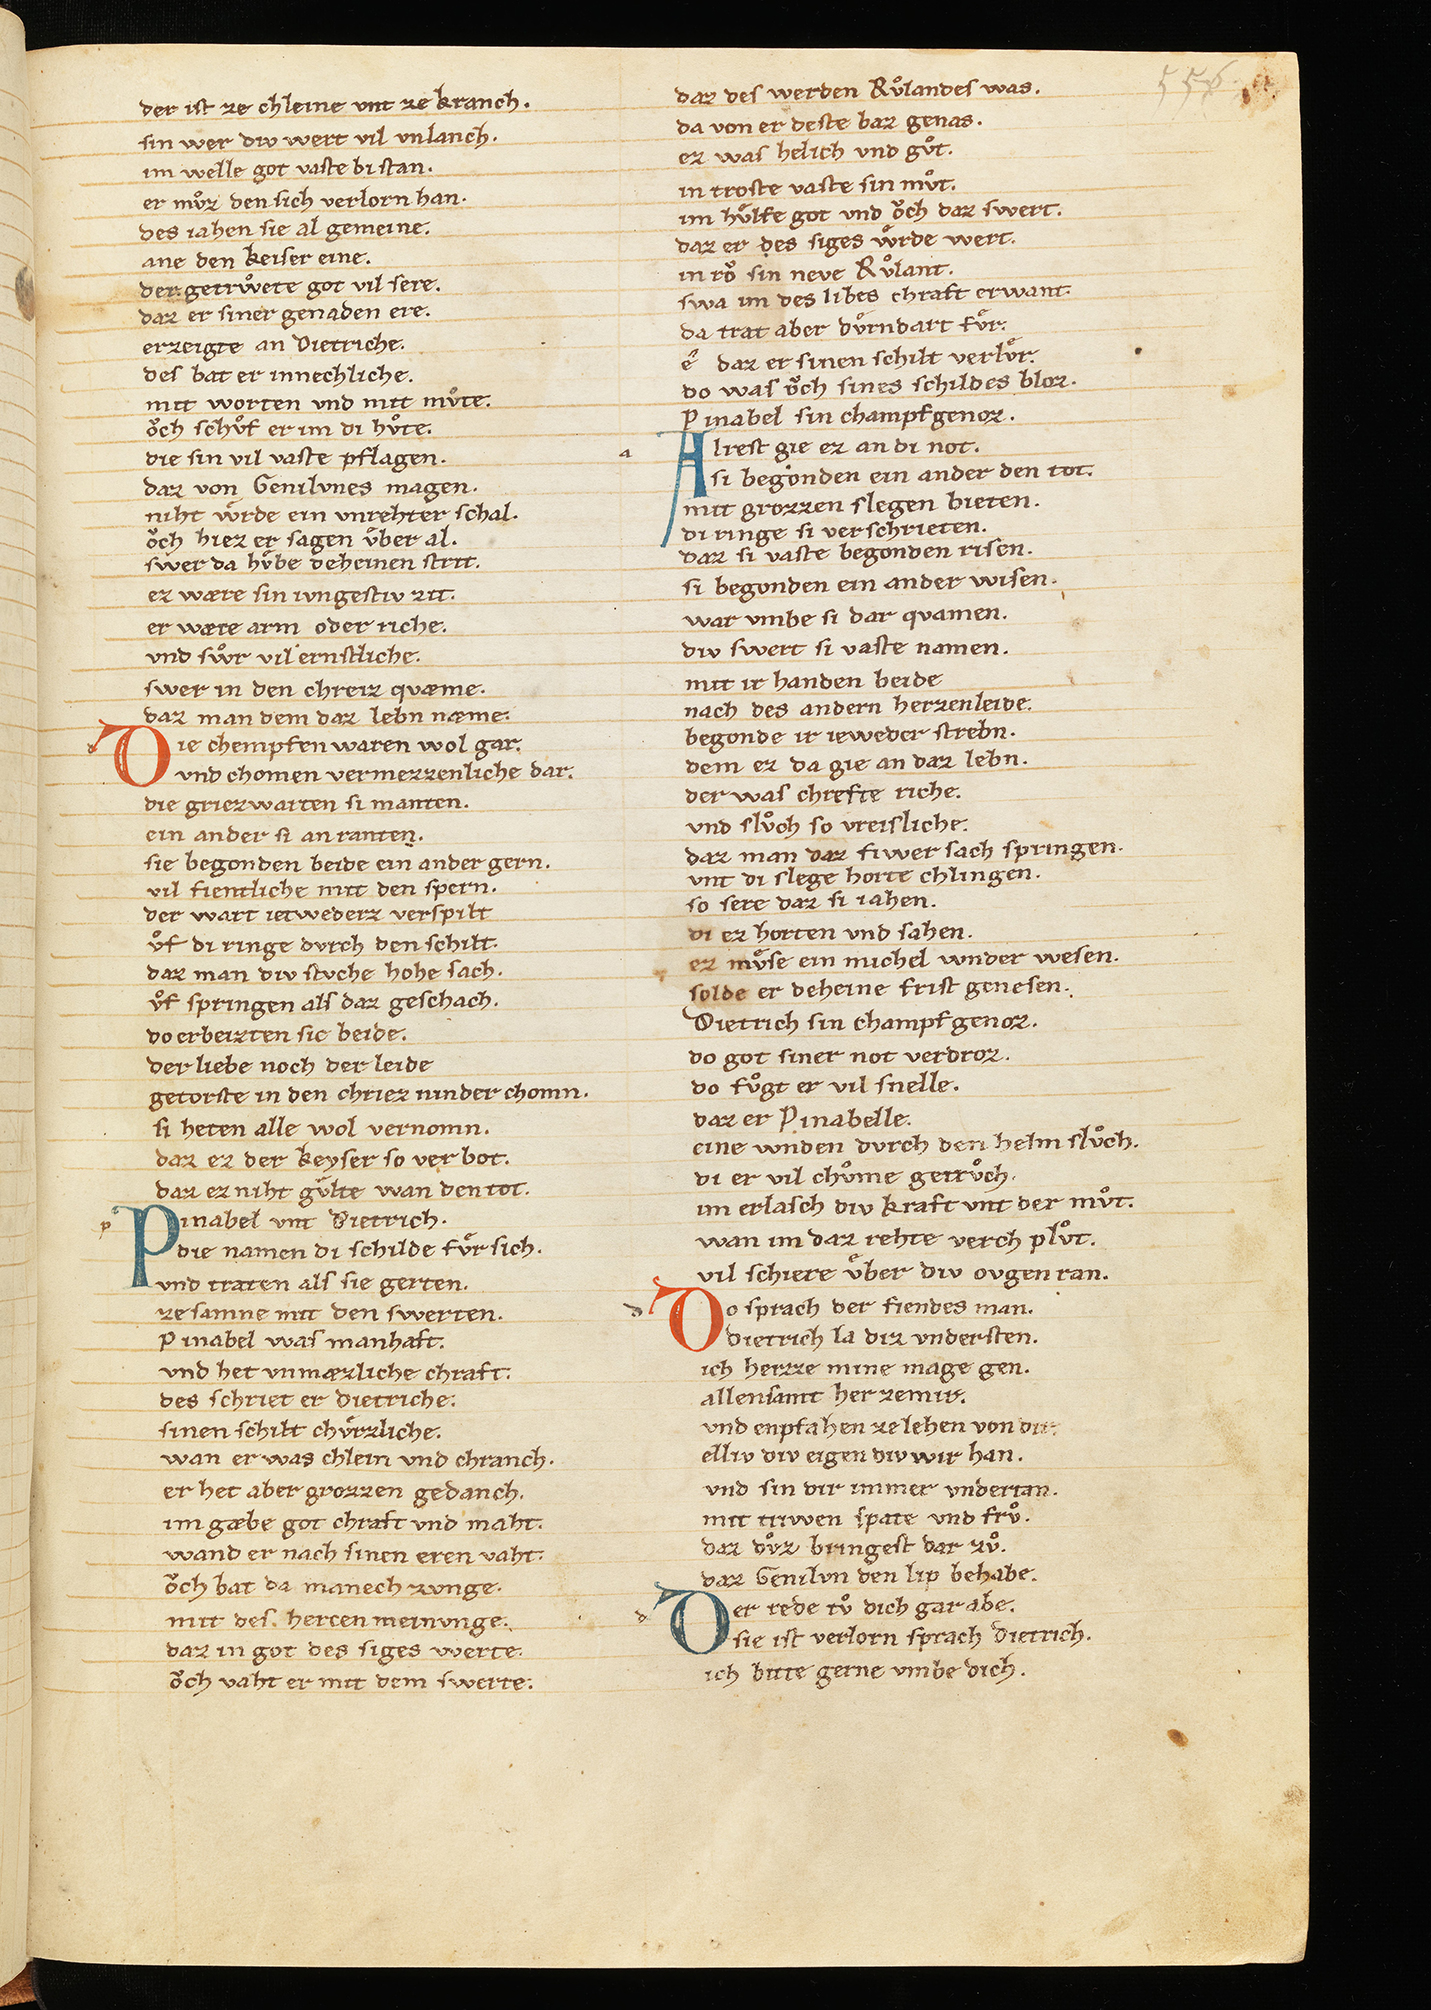 der ist ze chleine vnt ze kranch.
sin wer div wert vil vnlanch.
im welle got vaste bi stan.
er mvͦz den sich verlorn han.
des iahen sie al gemeine.
ane den keiser eine.
der getrwͦete got vil sere.
daz er siner genaden ere.
erzeigte an Dietriche.
des bat er innechliche.
mit worten vnd mit mvͦte.
oͮch schvͦf er im di hvͦte.
die sin vil vaste pflagen.
daz von Genilvnes magen.
niht wͦrde ein vnrehter schal.
oͮch hiez er sagen vͤber al.
swer da hvͤbe deheinen strit.
ez wære sin ivngestiv zit.
er wære arm oder riche.
vnd swͦr vil ernstliche.
swer in den chreiz qvæme.
daz man dem daz lebn næme.
Die chempfen waren wol gar.
vnd chomen vermezzenliche dar.
die griezwarten si manten.
ein ander si an ranten.
sie begonden beide ein ander gern.
vil fientliche mit den spern.
der wart ietwederz verspilt
vͦf di ringe dvrch den schilt.
daz man div stvche hohe sach.
vͦf springen als daz geschach.
do erbeizten sie beide.
der liebe noch der leide
getorste in den chriez ninder chomn.
si heten alle wol vernomn.
daz ez der keyser so verbot.
daz ez niht gvͤlte wan den tot.
Pinabel vnt Dietrich.
die namen di schilde fvͤr sich.
vnd traten als sie gerten.
ze samne mit den swerten.
Pinabel was manhaft.
vnd het vnmæzliche chraft.
des schriet er Dietriche.
sinen schilt chvͤrzliche.
wan er was chlein vnd chranch.
er het aber grozzen gedanch.
im gæbe got chraft vnd maht.
wand er nach sinen eren vaht.
oͮch bat da manech zvnge.
mit des hercen meinvnge.
daz in got des siges werte.
oͮch vaht er mit dem swerte.
daz des werden Rvͦlandes was.
da von er deste baz genas.
ez was helich vnd gvͦt.
in troste vaste sin mvͦt.
im hvͤlfe got vnd oͮch daz swert.
daz er des siges wͤrde wert.
in roͮ sin neve Rvͦlant.
swa im des libes chraft erwant.
da trat aber Dvͤrndart fvͤr.
e daz er sinen schilt verlvͤr.
do was oͮch sines schildes bloz.
Pinabel sin champfgenoz.
Alrest gie ez an di not.
si begonden ein ander den tot.
mit grozzen slegen bieten.
di ringe si verschrieten.
daz si vaste begonden risen.
si begonden ein ander wisen.
war vmbe si dar qvamen.
div swert si vaste namen.
mit ir handen beide
nach des andern herzenleide.
begonde ir ieweder strebn.
dem ez da gie an daz lebn.
der was chrefte riche.
vnd slvͦch so vreisliche.
daz man daz fiwer sach springen.
vnt di slege horte chlingen.
so sere daz si iahen.
di ez horten vnd sahen.
ez mvͤse ein michel wnder wesen.
solde er deheine frist genesen.
Dietrich sin champfgenoz.
do got siner not verdroz.
do fvͦgt er vil snelle.
daz er Pinabelle.
eine wnden dvrch den helm slvͦch.
di er vil chvͦme getrvͦch.
im erlasch div kraft vnt der mvͦt.
wan im daz rehte verch plvͦt.
vil schiere vͤber div ovgen ran.
Do sprach der fiendes man.
Dietrich la diz vndersten.
ich hezze mine mage gen.
allensamt her ze mir.
vnd enpfahen ze lehen von dir
elliv div eigen div wir han.
vnd sin dir immer vndertan.
mit triwen spate vnd frvͦ.
daz dvͦz bringest dar zvͦ.
daz Genilvn den lip behabe.
Der rede tvͦ dich gar abe.
sie ist verlorn sprach Dietrich.
ich bitte gerne vmbe dich.